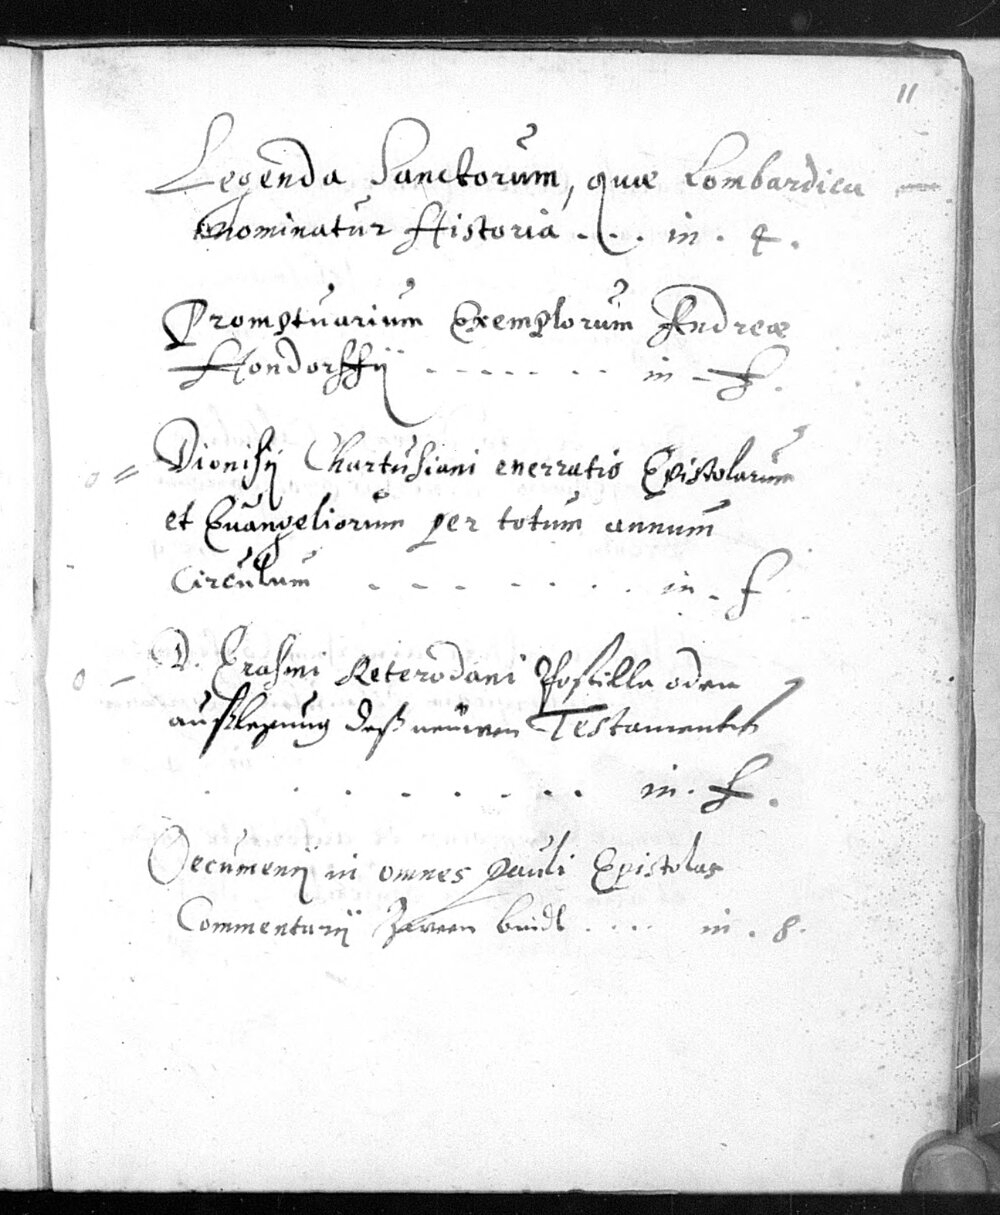 11
Legenda Sanctorum, quæ Lombardica
nominatur Historia . . . . in . 4 .
Promptuarium Exemplorum Andreæ
Hondorffij - - - - - - - in - f .
0 = Dionisij Chartusiani enerratio Epistolarum
et Euangeliorum per totum annum
Circulum - - - - - - . in . f
0 - D. Erasmi Reterodani Postilla oder
außlegung deß neüwen Testamentß
. . . . . . . . in . f .
Oecumenij in omnes Pauli Epistolas
Commentarij Zween bindt . . . . in . 8 .